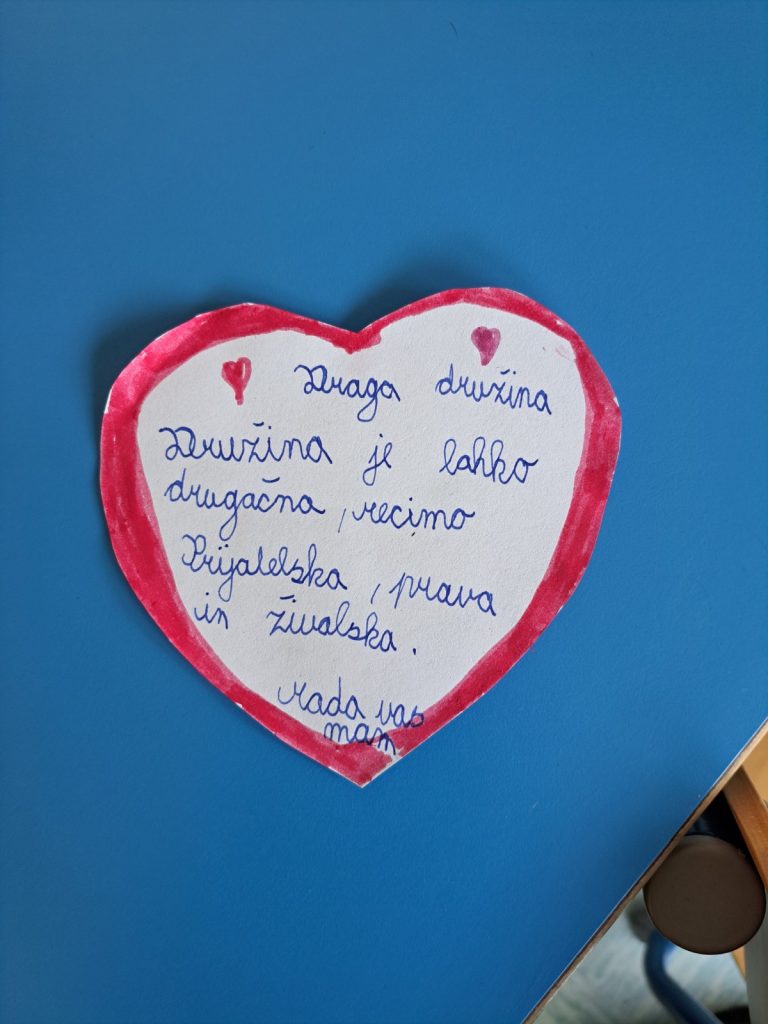 Draga družina
Družina je lahko
drugačna, recimo
Prijatelska, prava
in živalska.
rada vas
mam